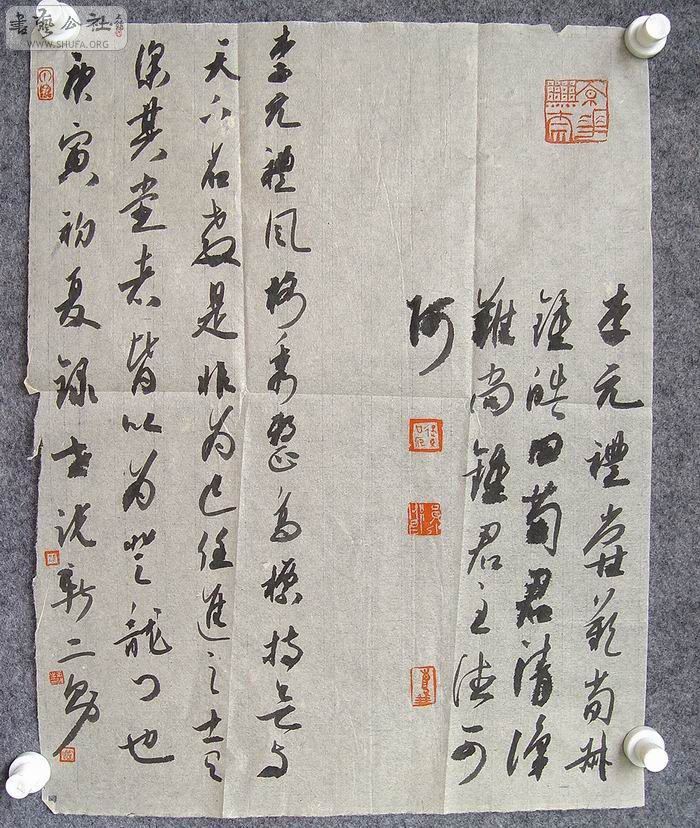 書藝公社
WWW.SHUFA.ORG
李元禮嘗歎荀淑
鍾皓曰荀君清識
難尚鍾君至德可
師
李元禮風格秀整高標持欲以
天下名教是非為己任進之士有
其堂者皆以為登龍門也
庚寅初夏錄世說新二則